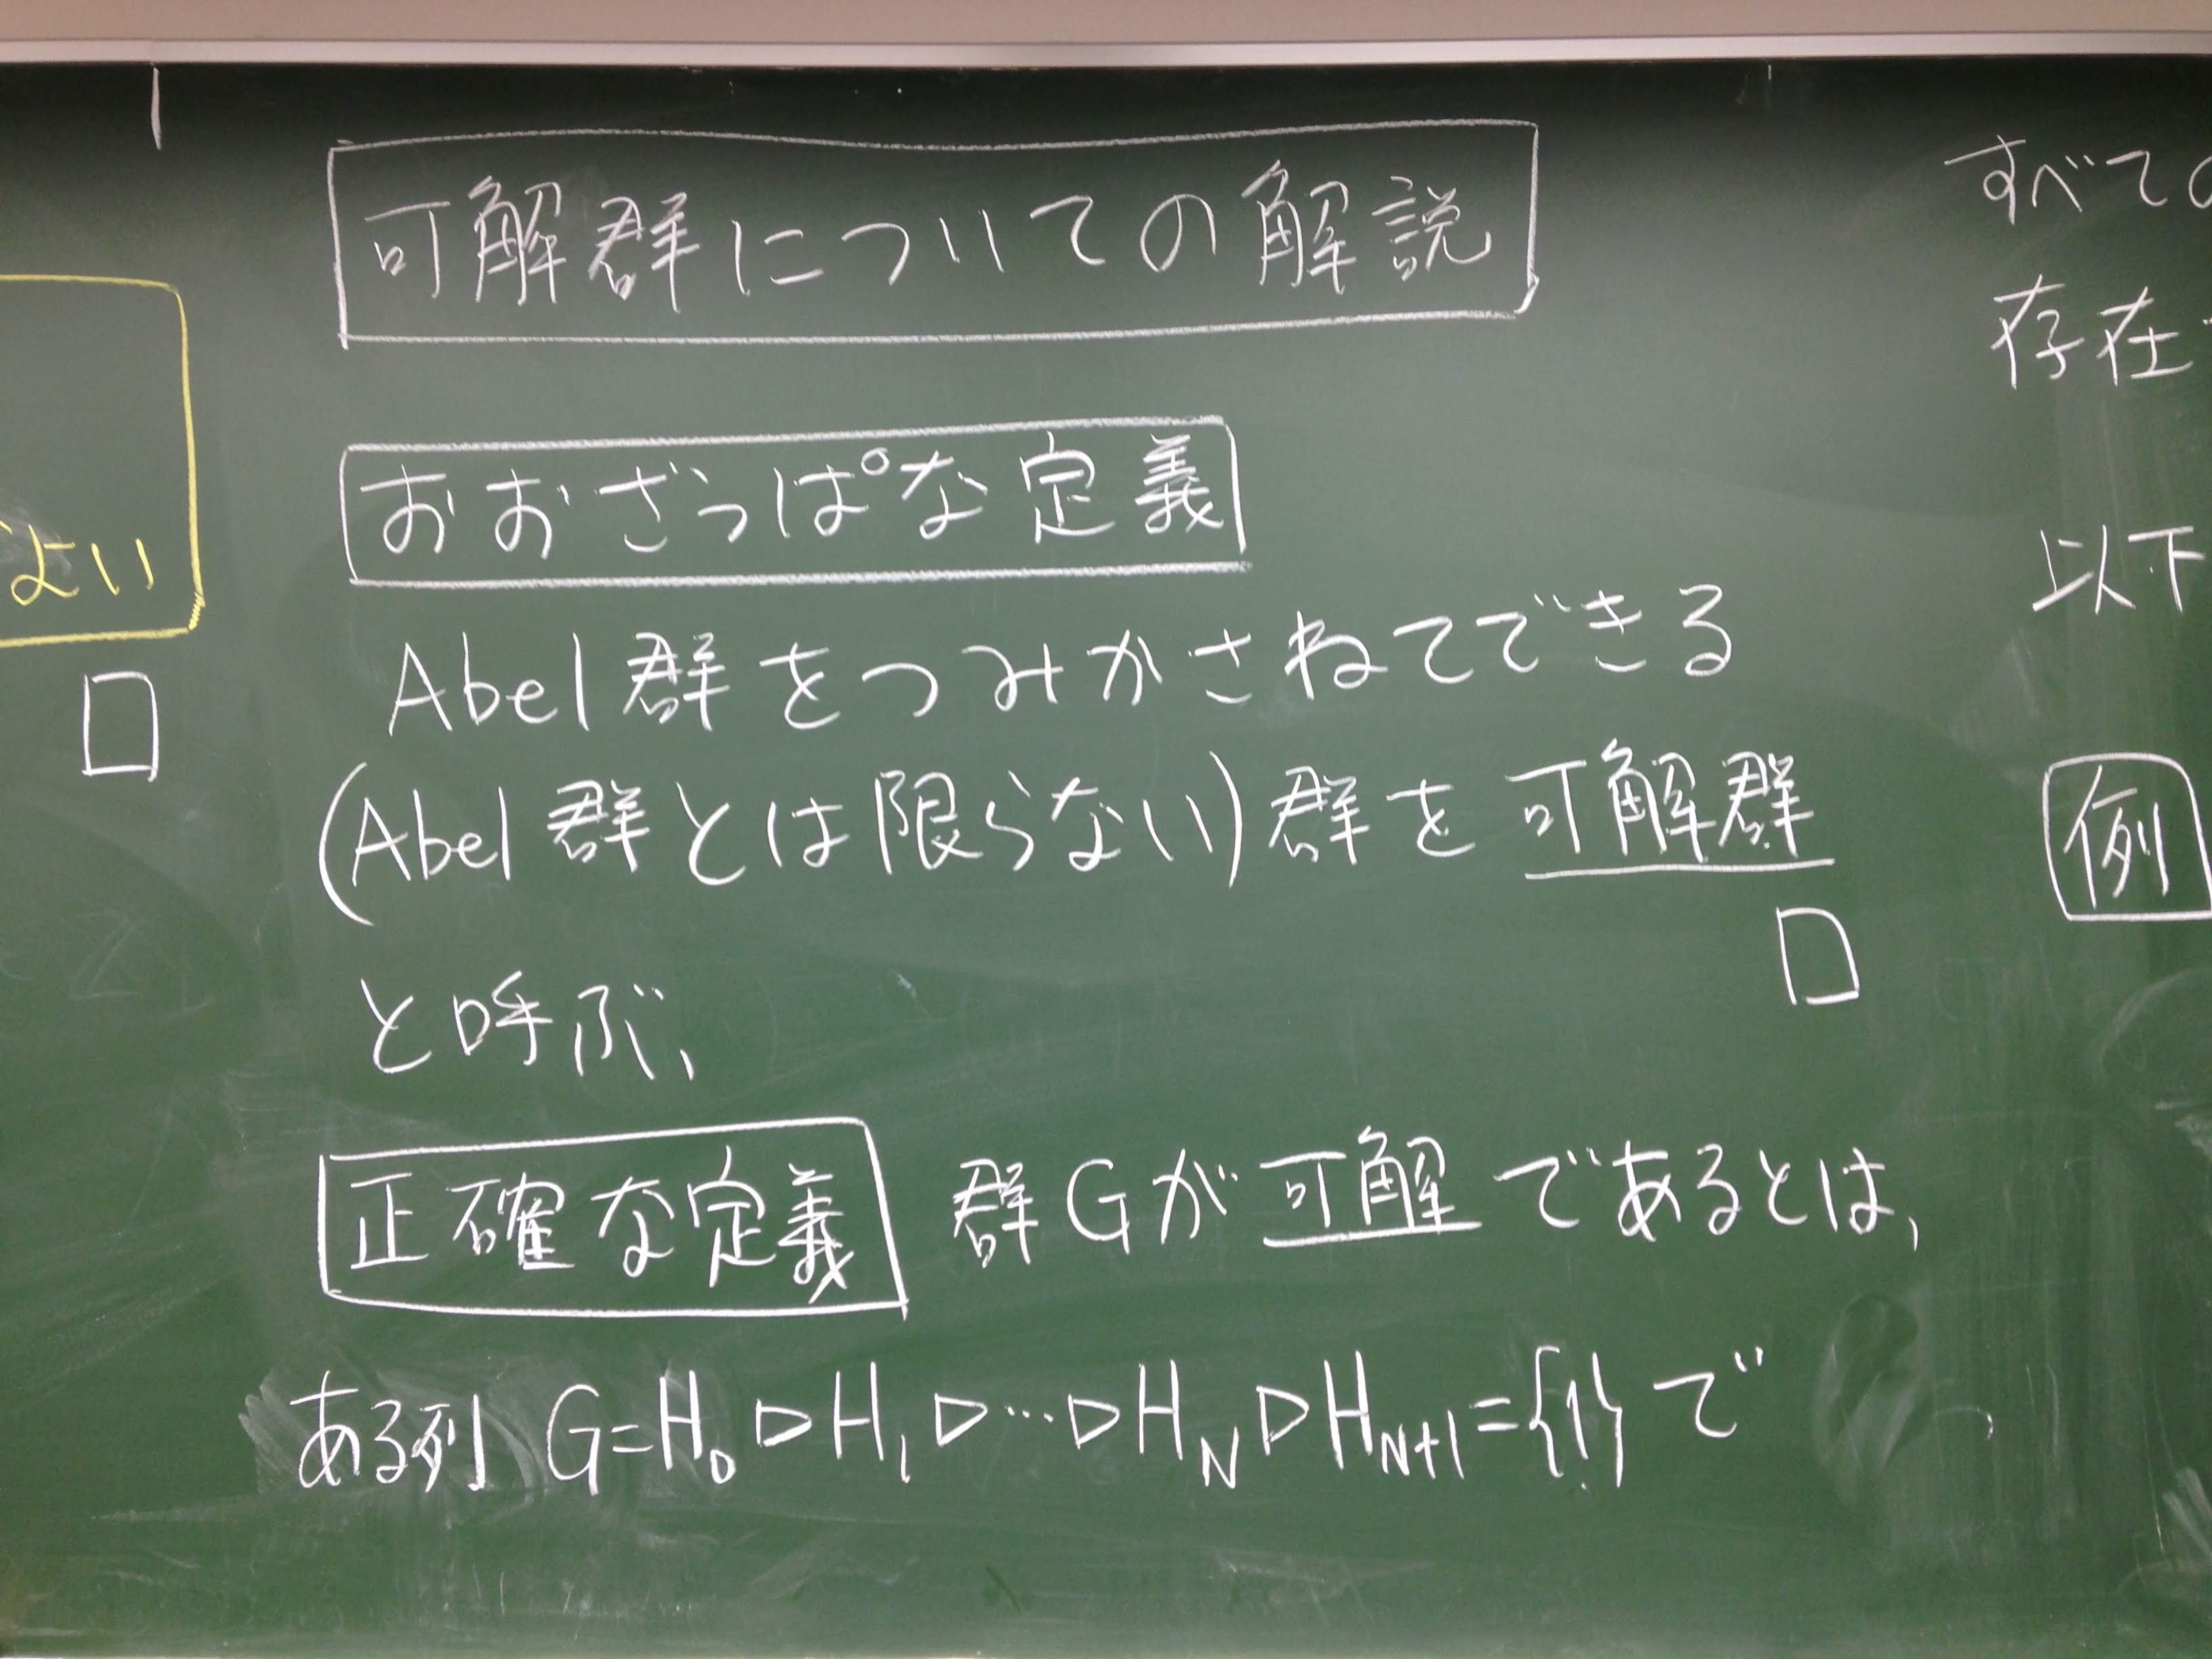 可解群についての解説
おおざっぱな定義
Abel群をつみかさねてできる
(Abel群とは限らない)群を可解群
と呼ぶ、
□
正確な定義 群Gが可解であるとは、
ある列 G=H₀▷H₁▷…▷H_N▷H_{N+1}={1}で
よい
□
すべて
存在
以下
例